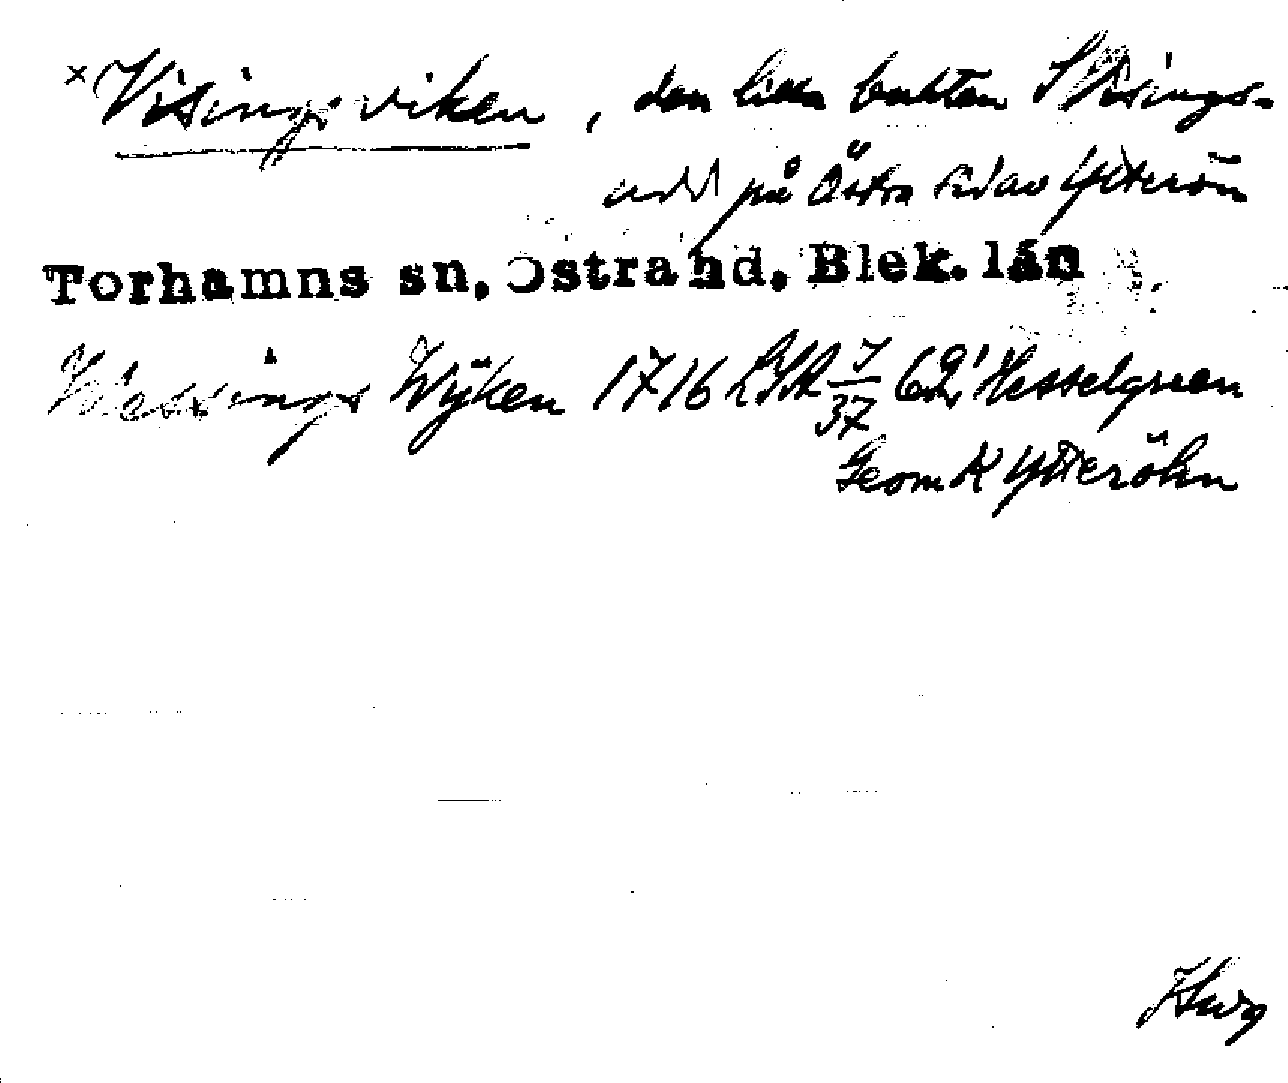 × Visingsviken, den lilla bukten S Visings-
udd på Östra sidav Ytterön
Torhamns sn, Östra hd, Blek. län
Wessings Wijken 1716 LSA 7/37 62' Hesselgreen
Geom K Ytteröhn